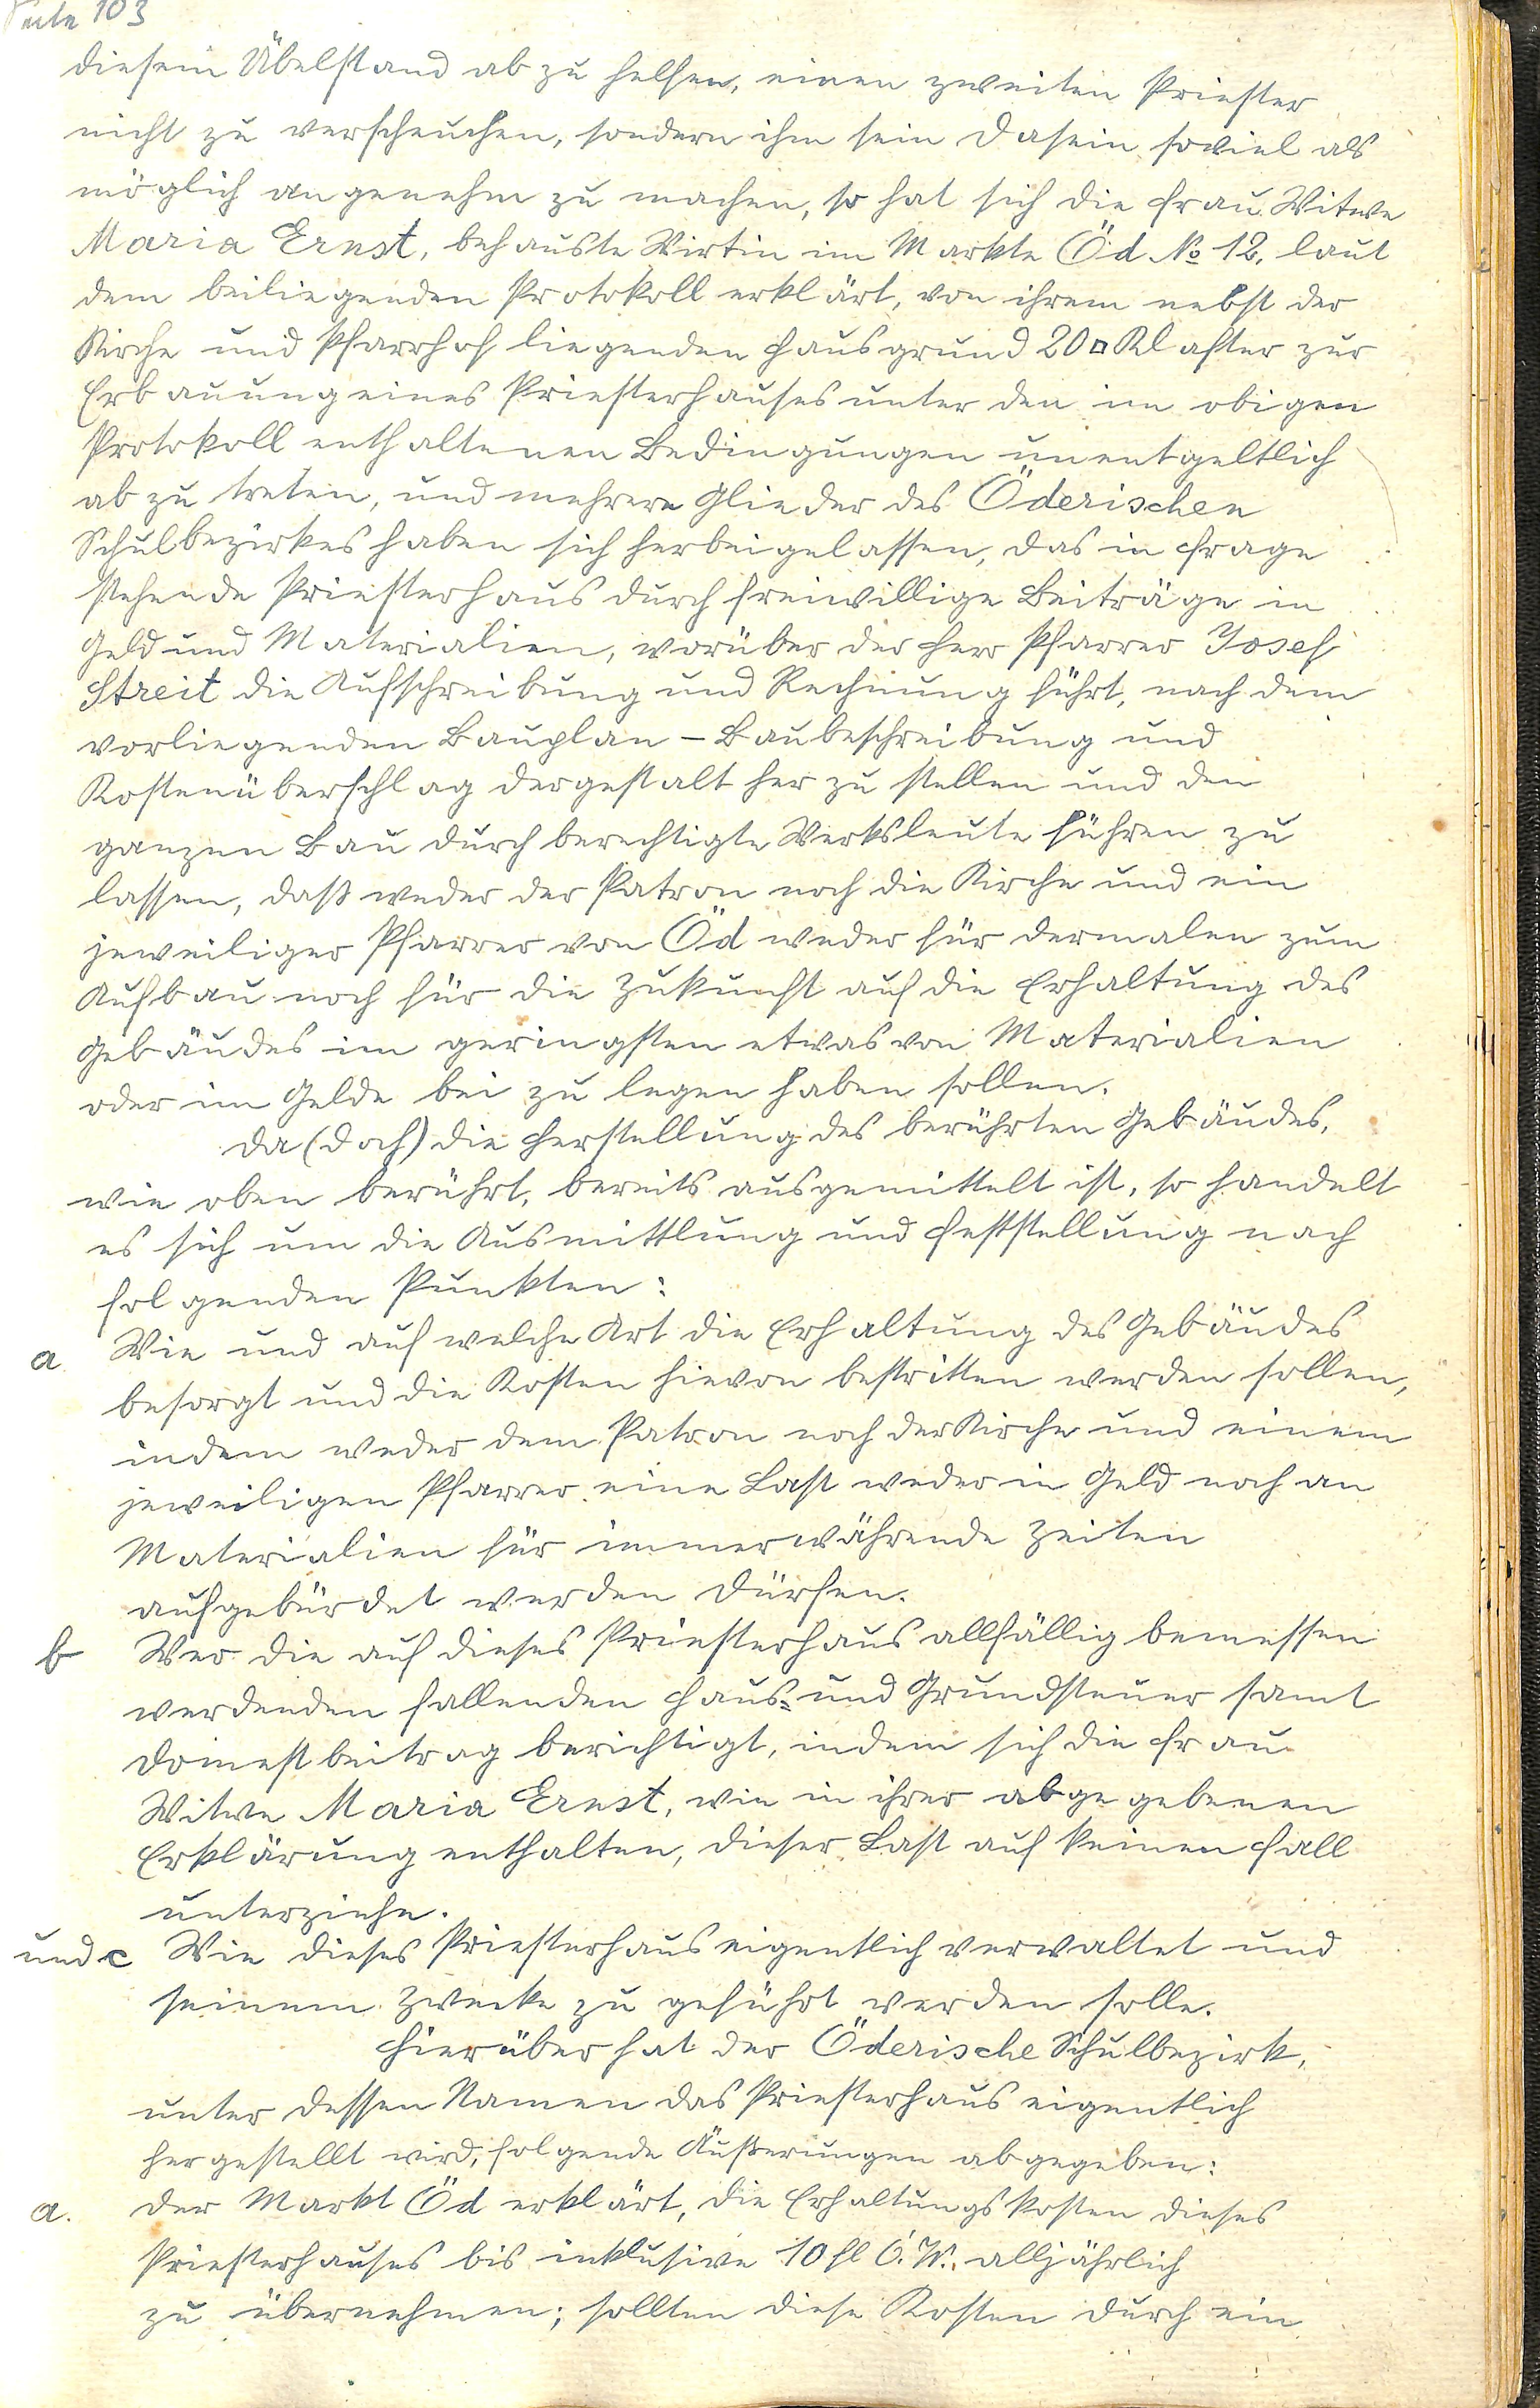 Seite 103
diesem Übelstand ab zu helfen, einen zweiten Priester
nicht zu verscheuchen, sondern ihm sein Dasein soviel als
möglich angenehm zu machen, so hat sich die Frau Witwe
Maria Ernst, behauste Wirtin im Markte Öd № 12, laut
dem beiliegenden Protokoll erklärt, von ihrem nebst der
Kirche und Pfarrhof liegenden Hausgrund 20 □ Klafter zur
Erbauung eines Priesterhauses unter den im obigen
Protokoll enthaltenen Bedingungen unentgeltlich
ab zu treten, und mehrere Glieder des Öderischen
Schulbezirkes haben sich herbeigelassen, das in Frage
stehende Priesterhaus durch freiwillige Beiträge in
Geld und Materialien, worüber der Herr Pfarrer Josef
Streit die Aufschreibung und Rechnung führt, nach dem
vorliegenden Bauplan - Baubeschreibung und
Kostenüberschlag dergestalt her zu stellen und den
ganzen Bau durch berechtigte Werksleute führen zu
lassen, daß weder der Patron noch die Kirche und ein
jeweiliger Pfarrer von Öd weder für dermalen zum
Aufbau noch für die Zukunft auf die Erhaltung des
Gebäudes im geringsten etwas von Materialien
oder im Gelde bei zu legen haben sollen.
Da (doch) die Herstellung des berührten Gebäudes,
wie oben berührt, bereits ausgemittelt ist, so handelt
es sich um die Ausmittlung und Feststellung nach
folgenden Punkten:
a Wie und auf welche Art die Erhaltung des Gebäudes
besorgt und die Kosten hievon bestritten werden sollen,
indem weder dem Patron noch der Kirche und einem
jeweiligen Pfarrer eine Last weder in Geld noch an
Materialien für immerwährende Zeiten
aufgebürdet werden dürfen.
b Wer die auf dieses Priesterhaus allfällig bemessen
werdenden fallenden Haus= und Grundsteuer samt
Domestbeitrag berichtigt, indem sich die Frau
Witwe Maria Ernst, wie in ihrer abgegebenen
Erklärung enthalten, dieser Last auf keinen Fall
unterziehe.
und c Wie dieses Priesterhaus eigentlich verwaltet und
seinem Zwecke zu geführt werden solle.
Hierüber hat der Öderische Schulbezirk,
unter dessen Namen das Priesterhaus eigentlich
hergestellt wird, folgende Äußerungen abgegeben:
a. Der Markt Öd erklärt, die Erhaltungskosten dieses
Priesterhauses bis inklusive 10 fl Ö.W. alljährlich
zu übernehmen; sollten diese Kosten durch ein